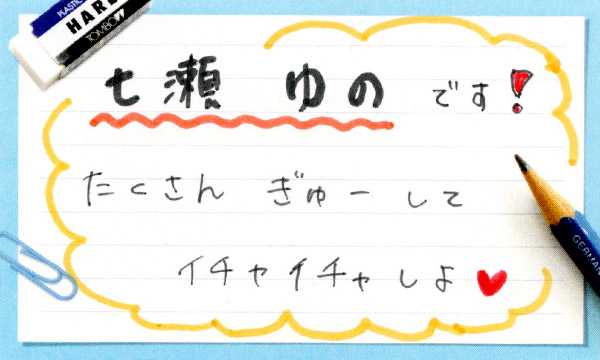 PLASTIC
HARD
TOMBOW
七瀬 ゆの です!
たくさん ぎゅー して
イチャイチャしよ♥
GERMAN